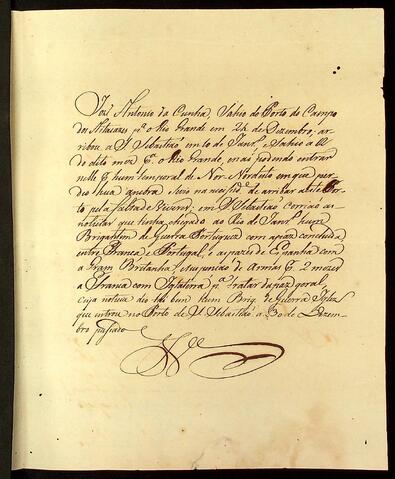 José Antonio da Cunha, Sahio do Porto do Campo
dos Aitacazes pª o Rio Grande em 24 de Dezembro, ar-
ribou a S. Sebastião em 10 de Janrº, e Sahio a 12
do dito mez pª o Rio Grande, não podendo entrar
nelle pr hum temporal de Nor-Nordeste em que per-
deo hua ancora
se vio na necessidᵉ de arribar a este Por-
to pela falta de viveres; em S. Sebastião corrião as
noticias que tinha chegado ao Rio de Janrº hum
Brigantim de Guerra Portuguez com a paz concluida
entre França e Portugal, e as pazes de Espanha com
a Gram Bretanha, e suspenção de Armas pr 2 mezes
a França com Inglaterra pª tratar da paz geral,
cuja noticia deo tão bem hum Brigᵐ de Guerra Inglez
que entrou no Porto de S. Sebastião a 30 de Dezem-
bro passado